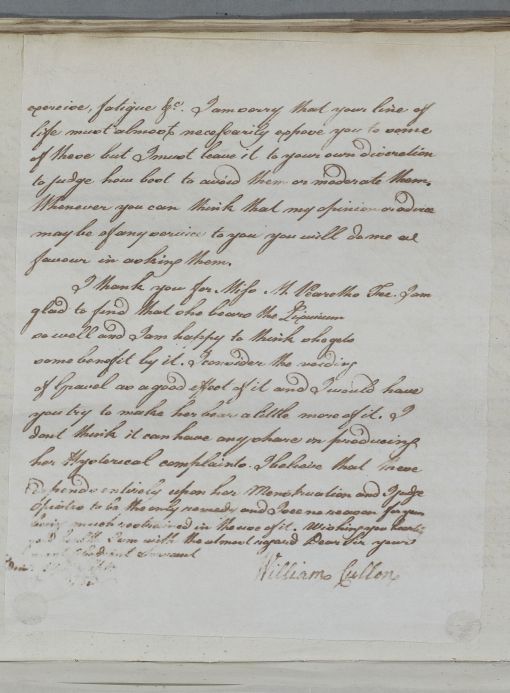 exercise, fatigue &c. I am sorry that your line of
life must almost necessarily expose you to some
of these but I must leave it to your own discretion
to judge how best to avoid them or moderate them.
Whenever you can think that my opinion or advice
may be of any service to you you will do me a
favour in asking them.
I thank you for Miss M. Fee. I am
glad to find that she bears the Lixivium
so well and I am happy to think she gets
some benefit by it. I consider the voiding
of Gravel as a good effect of it and I would have
you try to make her bear a little more of it. I
dont think it can have any share in producing
her Hysterical complaints. I believe that these
depend entirely upon her Menstruation and I judge
Opiates to be the only remedy and I see no reason for your
being much restrained in the use of it. Wishing you heartily
good health I am with the utmost regard Dear Sir your
most Obedient Servant
William Cullen